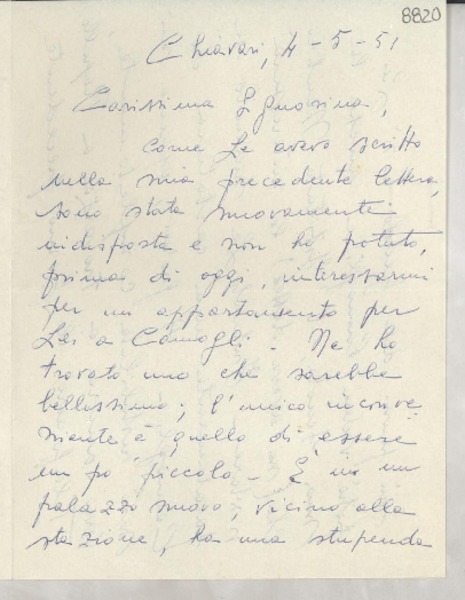 8820
Chiavari, 4-5-51
Carissima Signorina,
come Le avevo scritto
nella mia precedente lettera,
sono stata nuovamente
indisposta e non ho potuto,
prima di oggi, interessarmi
per un appartamento per
Lei a Camogli - Ne ho
trovato uno che sarebbe
bellissimo; l'unico inconve
niente è quello di essere
un po' piccolo - È in un
palazzo nuovo, vicino alla
stazione, ha una stupenda